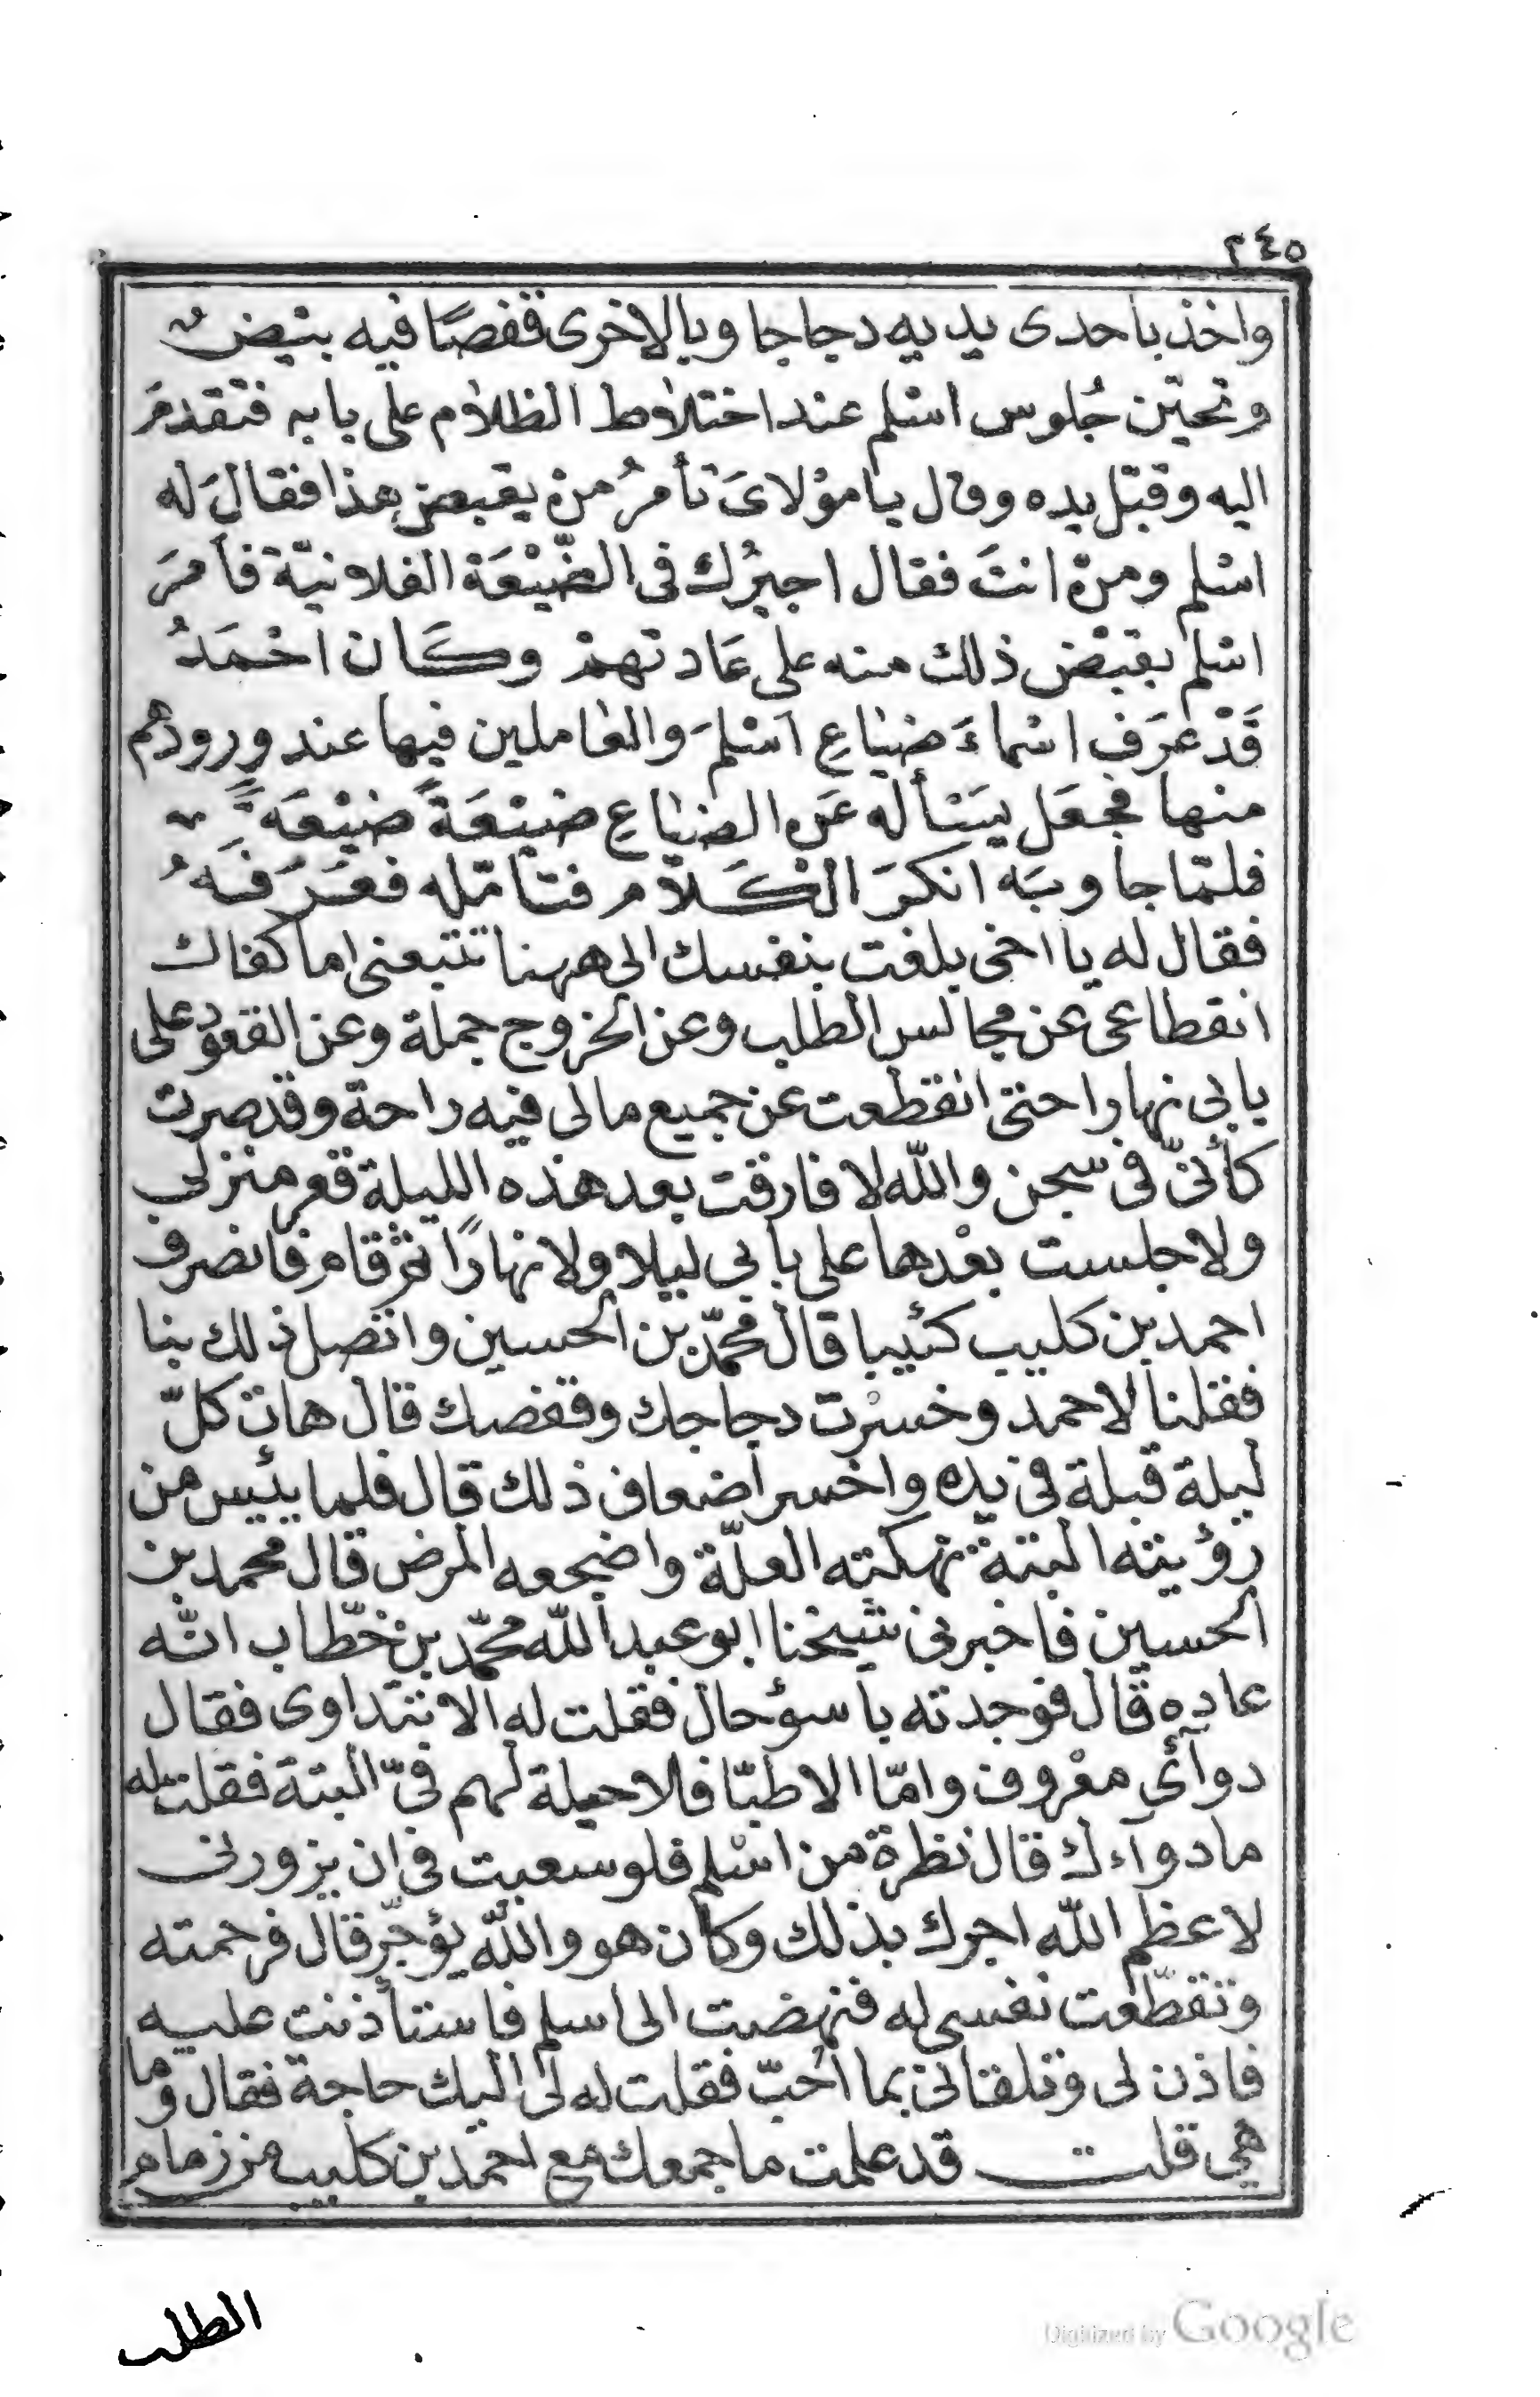 ٢٤٥
واخذ باحدى يديه دجاجا وبالاخرى قفصًا فيه بيْضٌ
وتحيّن جُلوس اسْلم عند اختلاط الظلام على بابه فتقدمَ
اليه وقبّل يده وقال يا موْلاىَ تأمرُ منْ يقبض هذا فقالَ له
اسْلم ومنْ انتَ فقال اجيرُك فى الضّيْعَة الفلانيّة فأمرَ
اسْلم بقبْض ذلك منه على عَادتهمْ وكَان احْمَدُ
قَدْ عَرَف اسْماءَ ضيَاعِ اسْلمَ والعَاملين فيها عند ورودهم
منْها فجعَل يسَْأله عَن الضيَاعِ ضيْعَةً ضيْعَةً
فلمّا جاوبَه انكرَ الكَلامَ فتأمّله فعَرَفَهُ
فقال له يا اخى بلغت بنفسك الى ههنا تتبعنى اما كفاك
انقطاعى عن مجالس الطلب وعن الخروج جملة وعن القعود على
بابى نهارا حتى انقطعت عن جميع مالى فيه راحة وقد صرت
كأنىّ فى سجن والله لا فارقت بعد هذه الليلة قعر منزلى
ولا جلست بعْدها على بابى ليلا ولا نهارًا ثم قام فانصرف
احمد بن كليب كئيبا قال محمّد بن الحسين واتصل ذلك بنا
فقلنا لاحمد وخسرْت دجاجك وقفصك قال هات كلّ
ليلة قبلة فى يده واخسر اضعاف ذلك قال فلما يئيس من
رؤيته البتة نهكته العلّة واضجعه المرض قال محمد بن
الحسين فاخبرنى شيخنا ابو عبد الله محمّد بن خطّاب انّه
عاده قال فوجدته باسوؤ حال فقلت له الا تتداوى فقال
دوآئى معْروف وامّا الاطبّا فلا حيلة لهم فىّ البتة فقلت له
ما دوآءك قال نظرة من اسْلم فلو سعيت فى ان يزورنى
لاعظم الله اجرك بذلك وكان هو والله يؤجّر قال فرحمته
وتقطّعت نفسى له فنهضت الى اسلم فاستأذنت عليه
فاذن لى وتلقانى بما اُحبّ فقلت له لى اليك حاجة فقال وما
هى قلت قد علمت ما جمعك مع احمد بن كليب من زمام
الطلب
Digitized by Google